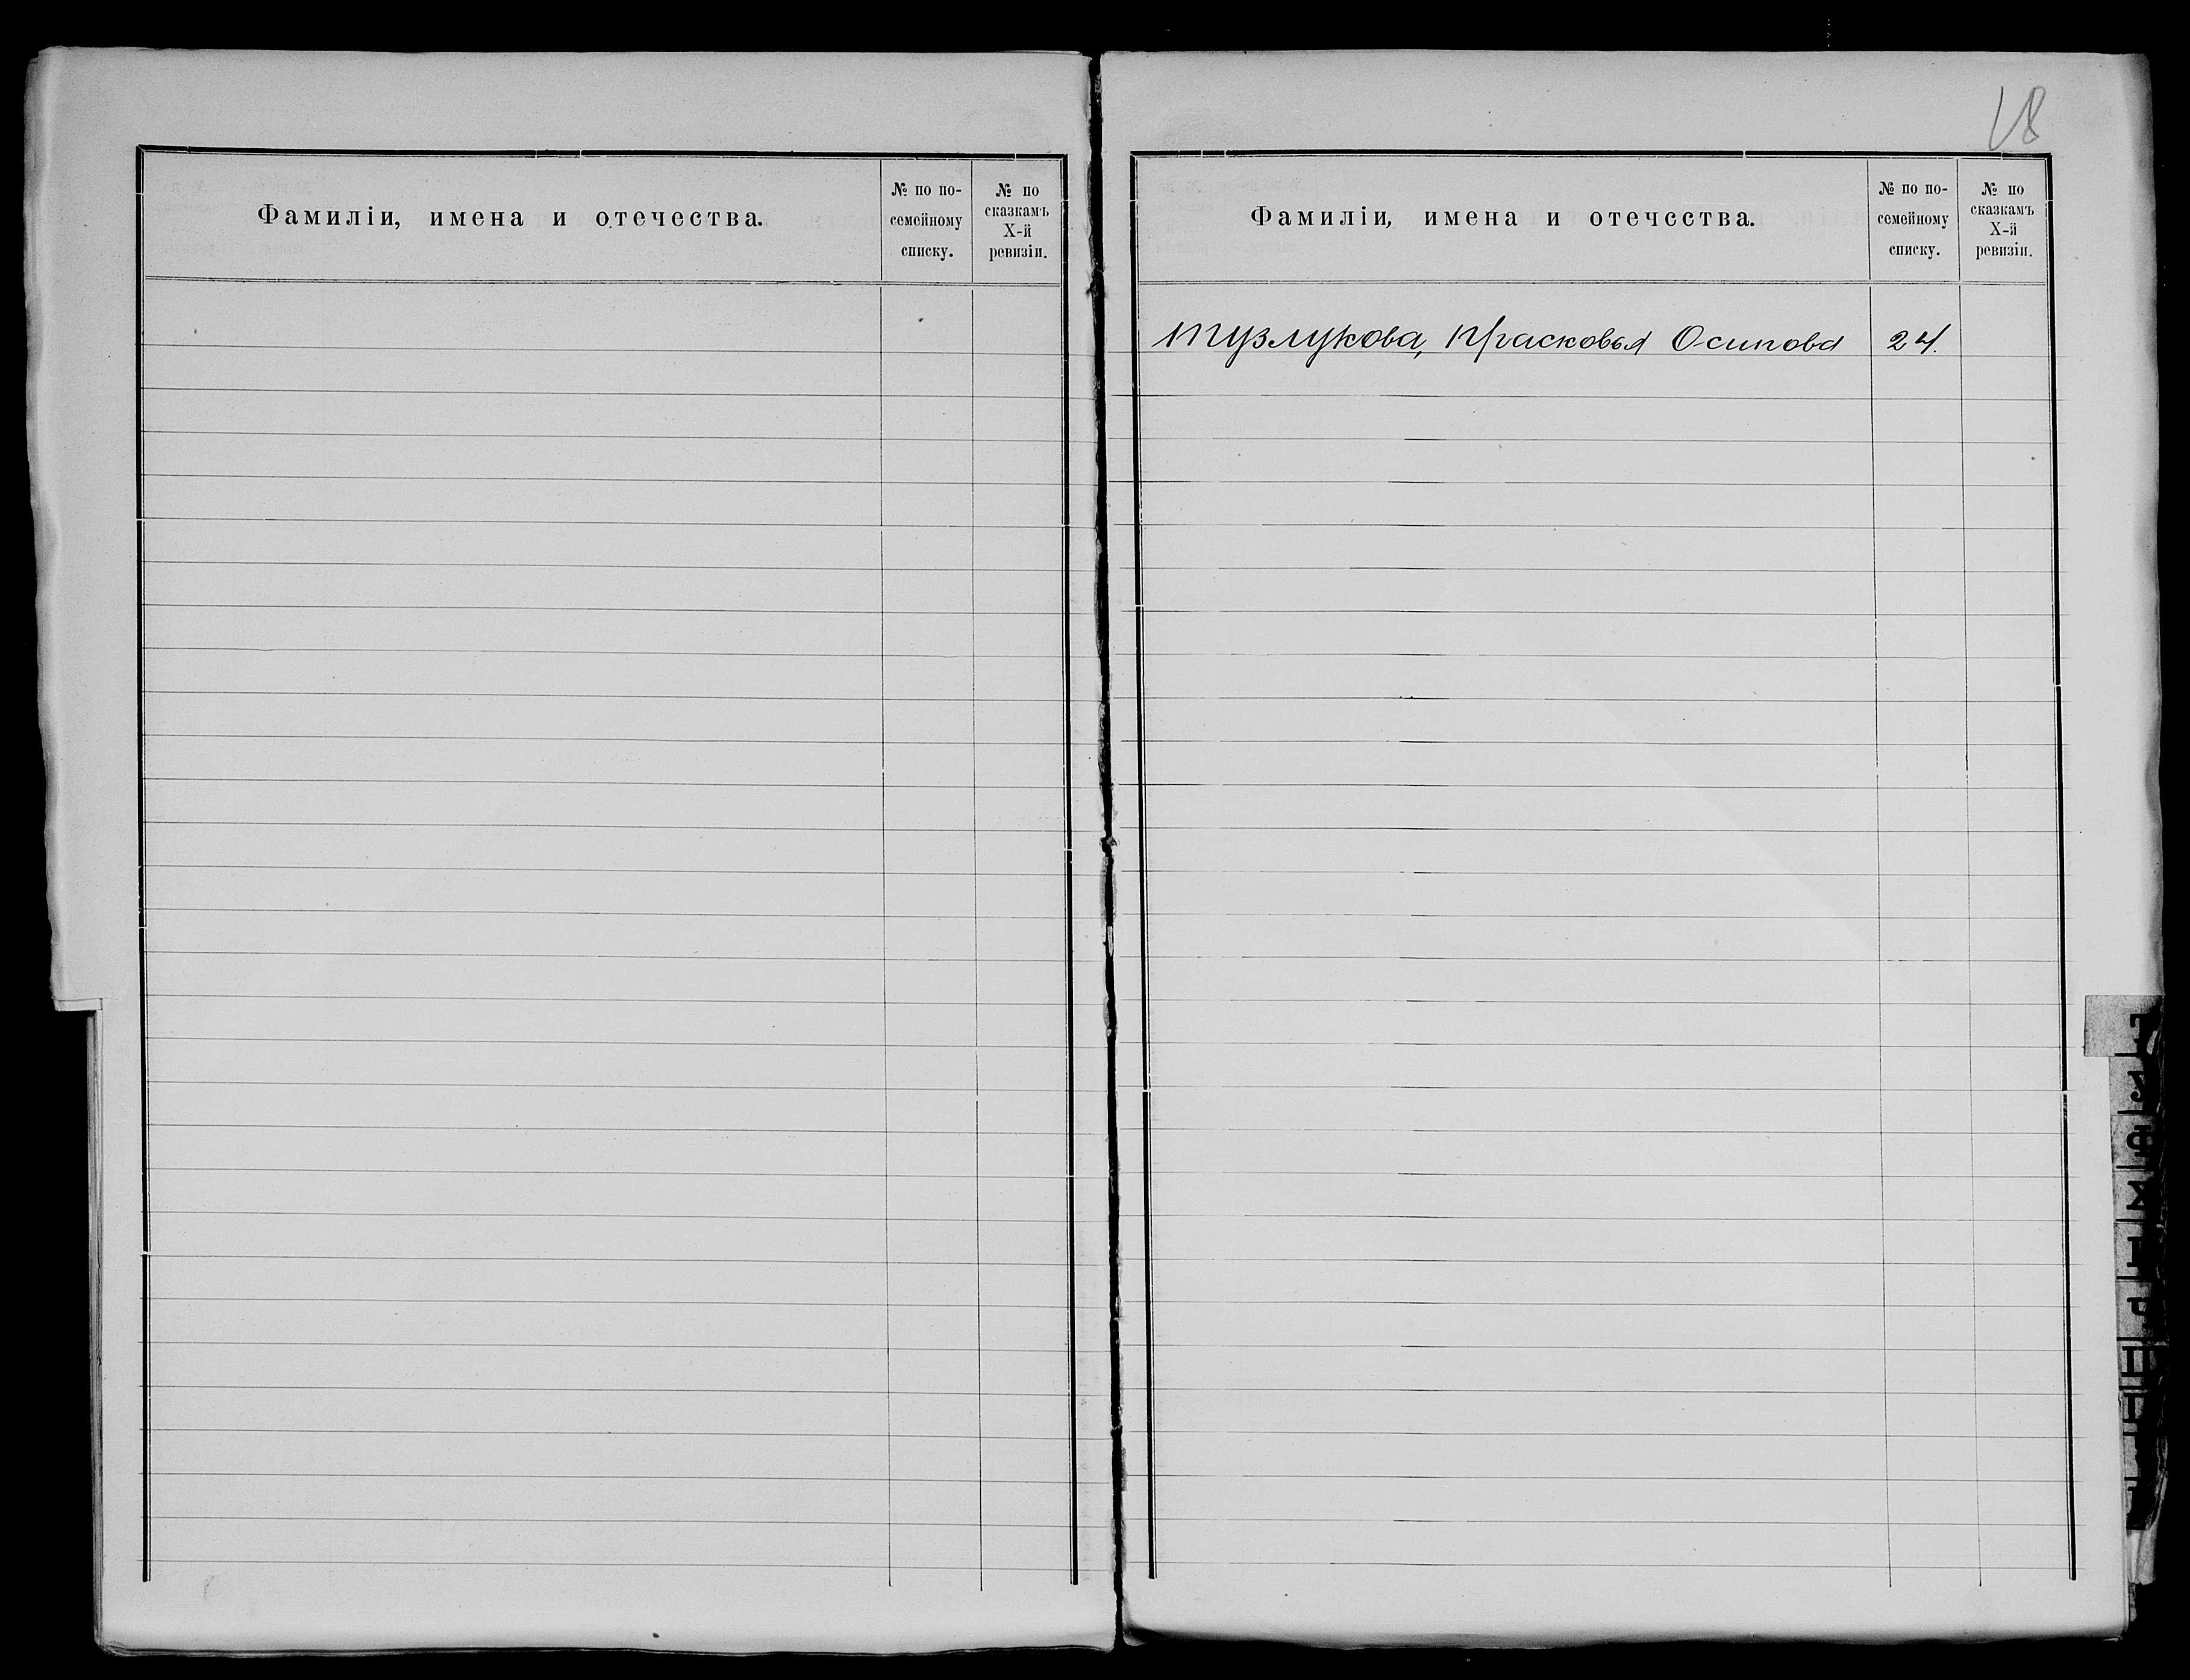 18
Фамиліи, имена и отечества.
№ по по-
семейному
списку.
№ по
сказкамъ
X-й
ревизіи.
Фамиліи, имена и отечества.
№ по по-
семейному
списку.
№ по
сказкамъ
X-й
ревизіи.
Тузлукова, Прасковья Осипова 24.